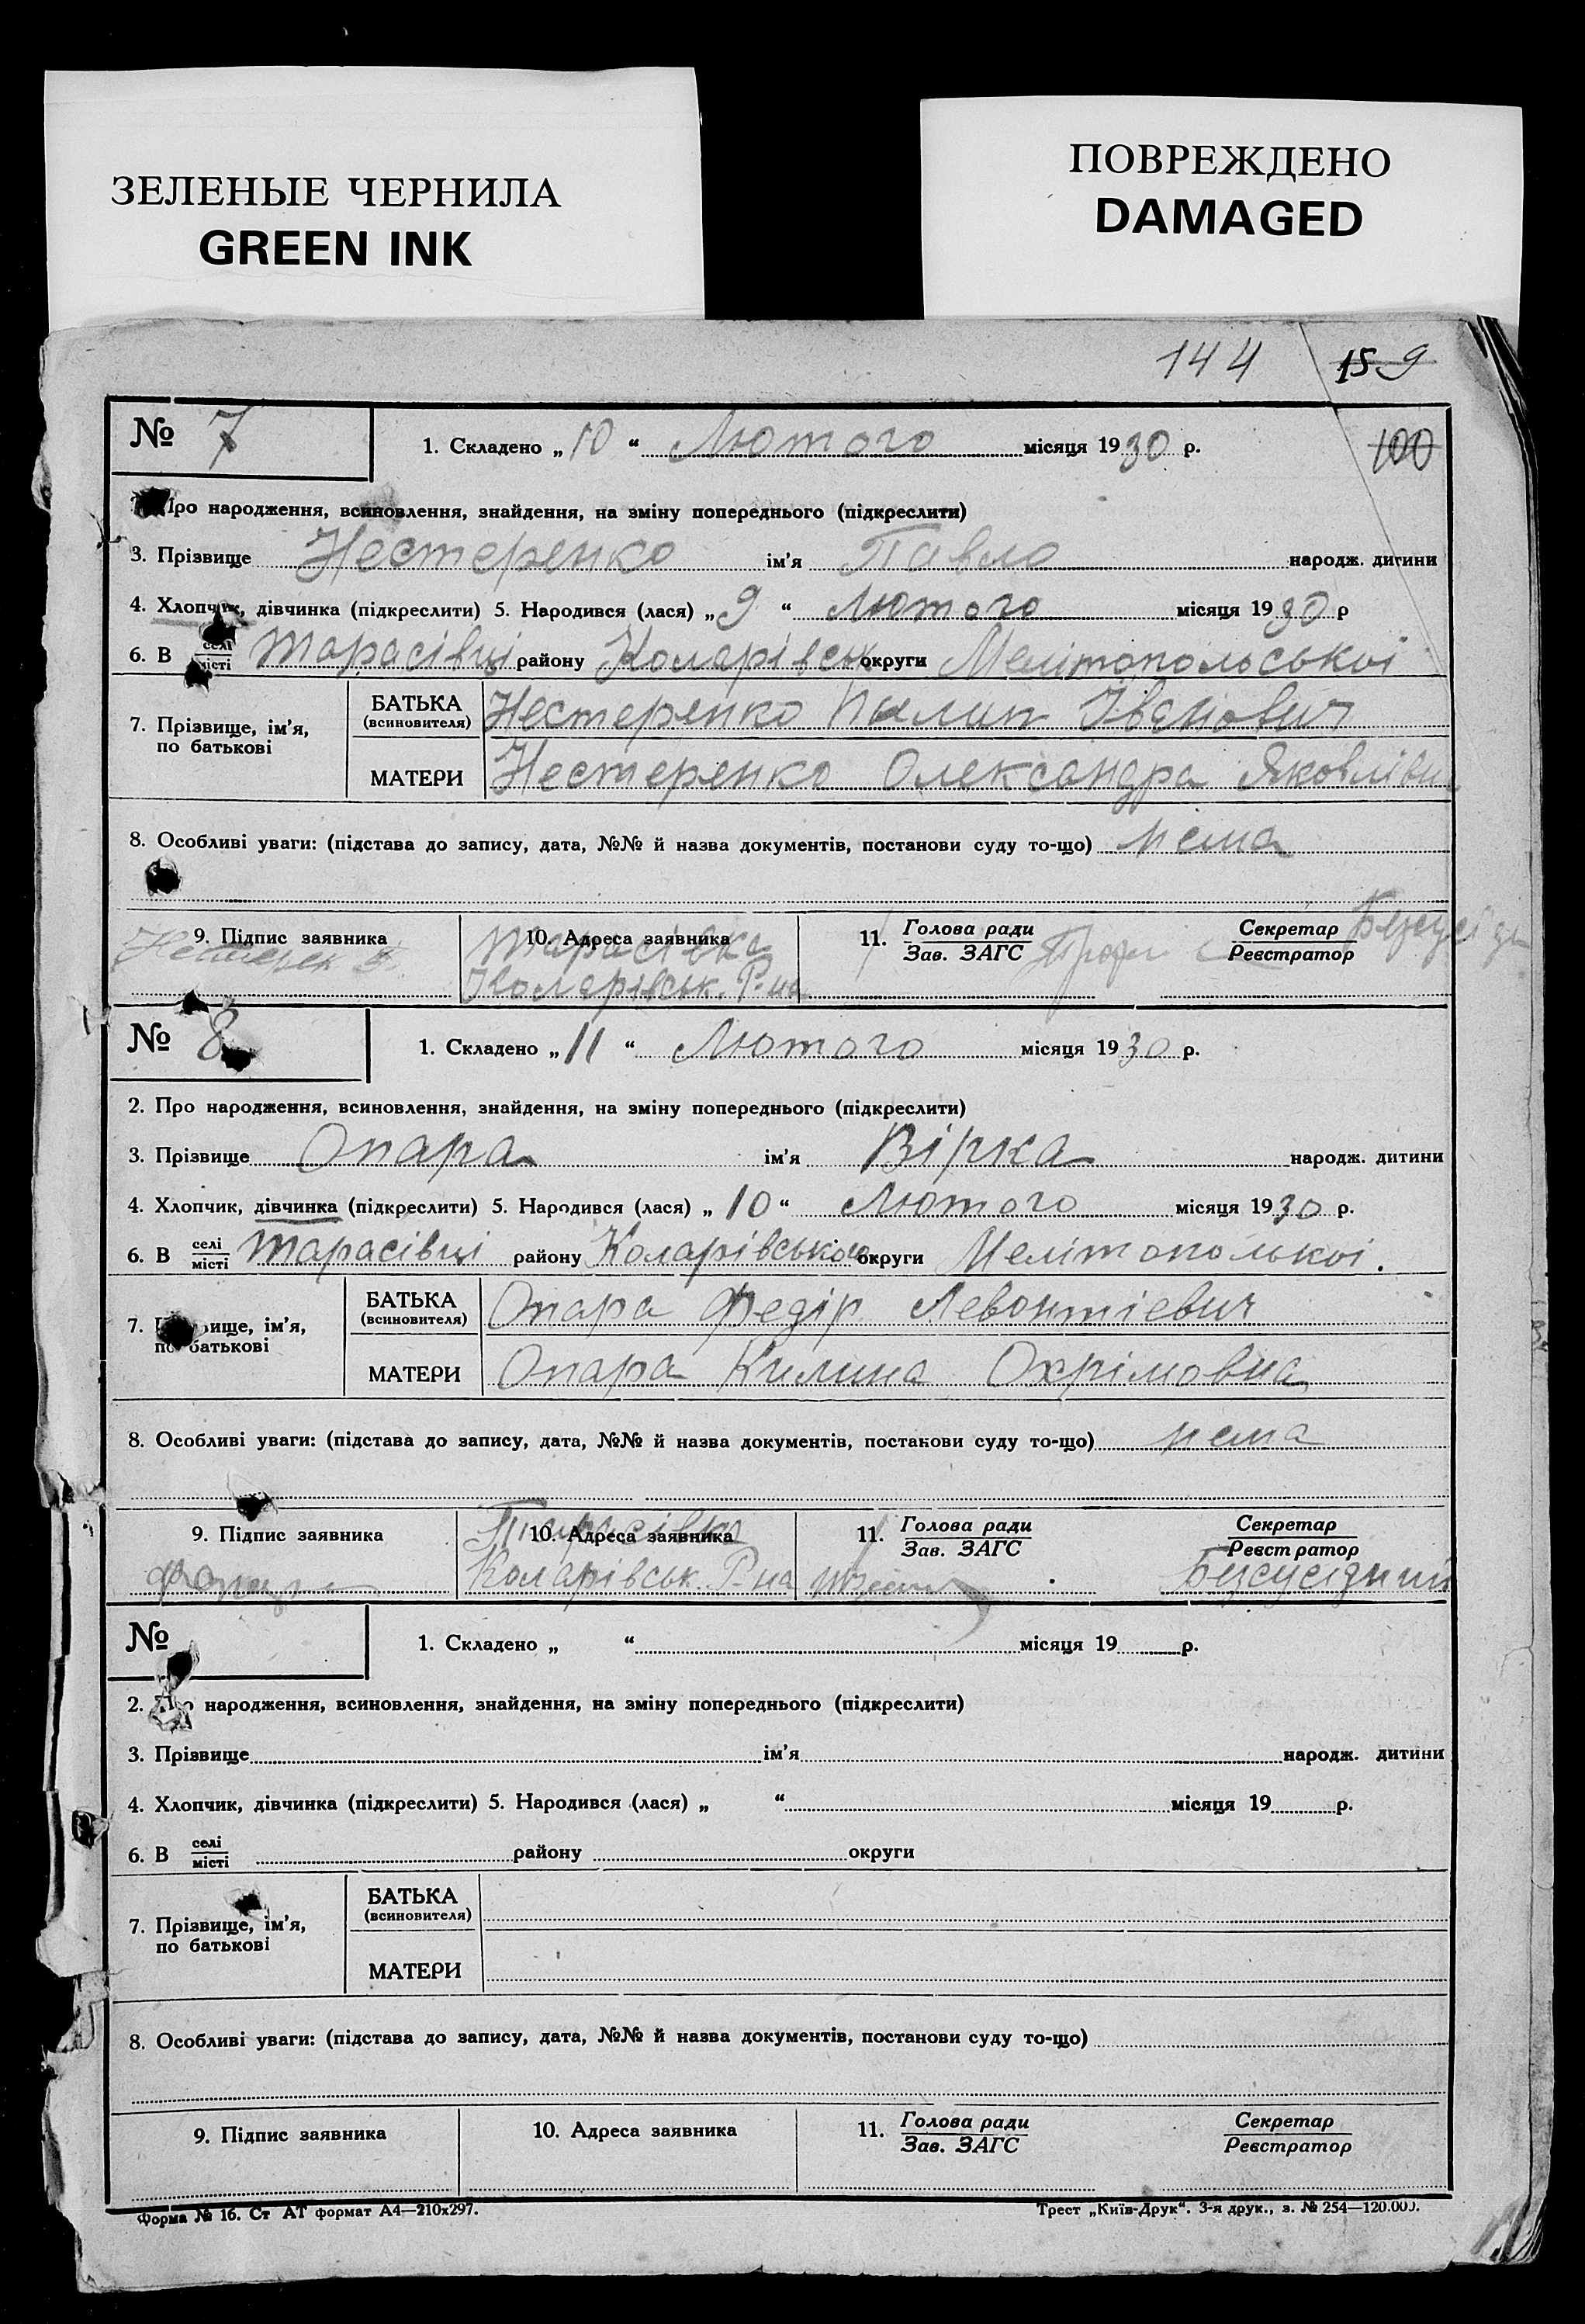 ЗЕЛЕНЫЕ ЧЕРНИЛА
GREEN INK
ПОВРЕЖДЕНО
DAMAGED
144 159
№ 7 1. Складено „10“ Лютого місяця 1930 р. 100
Про народження, всиновлення, знайдення, на зміну попереднього (підкреслити)
3. Прізвище Нестеренко ім’я Павло народж. дитини
4. Хлопчик, дівчинка (підкреслити) 5. Народився (лася) „9“ Лютого місяця 1930 р
6. В селі Тарасівці району Коларівськ округи Мелітопольської
місті
7. Прізвище, ім’я, по батькові
БАТЬКА (всиновителя) Нестеренко Пилип Іванович
МАТЕРИ Нестеренко Олександра Яковлівн
8. Особливі уваги: (підстава до запису, дата, №№ й назва документів, постанови суду то-що) нема
9. Підпис заявника 10. Адреса заявника 11. Голова ради Секретар
Зав. ЗАГС Реєстратор
Тарасівка
Коларівськ. Р-на
№ 8 1. Складено „11“ Лютого місяця 1930 р.
2. Про народження, всиновлення, знайдення, на зміну попереднього (підкреслити)
3. Прізвище Опара ім’я Вірка народж. дитини
4. Хлопчик, дівчинка (підкреслити) 5. Народився (лася) „10“ Лютого місяця 1930 р.
6. В селі Тарасівці району Коларівського округи Мелітополької.
місті
7. ім’я, по батькові
БАТЬКА (всиновителя) Опара Федір Левонтіевич
МАТЕРИ Опара Килина Охрімовна
8. Особливі уваги: (підстава до запису, дата, №№ й назва документів, постанови суду то-що) нема
9. Підпис заявника 10. Адреса заявника 11. Голова ради Секретар
Зав. ЗАГС Реєстратор
Тарасівка
Коларівськ. Р-на Безсусідний
№ 1. Складено „ “ місяця 19 р.
2. народження, всиновлення, знайдення, на зміну попереднього (підкреслити)
3. Прізвище ім’я народж. дитини
4. Хлопчик, дівчинка (підкреслити) 5. Народився (лася) „ “ місяця 19 р.
6. В селі району округи
місті
7. Прізвище, ім’я, по батькові
БАТЬКА (всиновителя)
МАТЕРИ
8. Особливі уваги: (підстава до запису, дата, №№ й назва документів, постанови суду то-що)
9. Підпис заявника 10. Адреса заявника 11. Голова ради Секретар
Зав. ЗАГС Реєстратор
Форма № 16. Ст АТ формат А4—210х297. Трест „Київ-Друк“. 3-я друк., з. № 254—120.000.